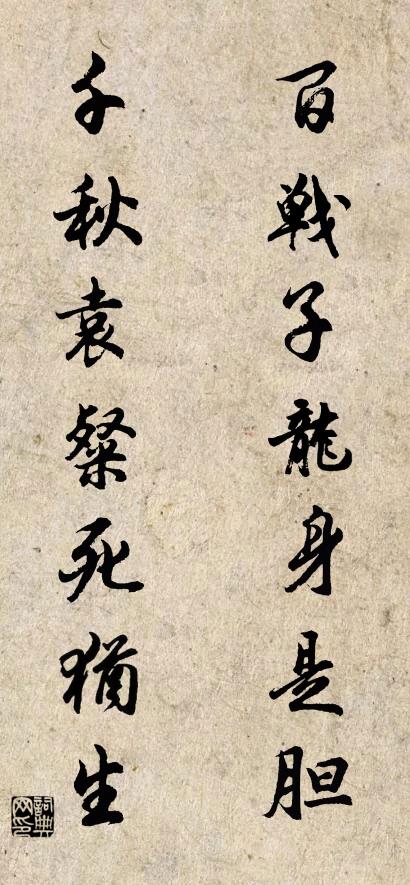 百戦子龍身是胆
千秋袁粲死猶生
詞典网印